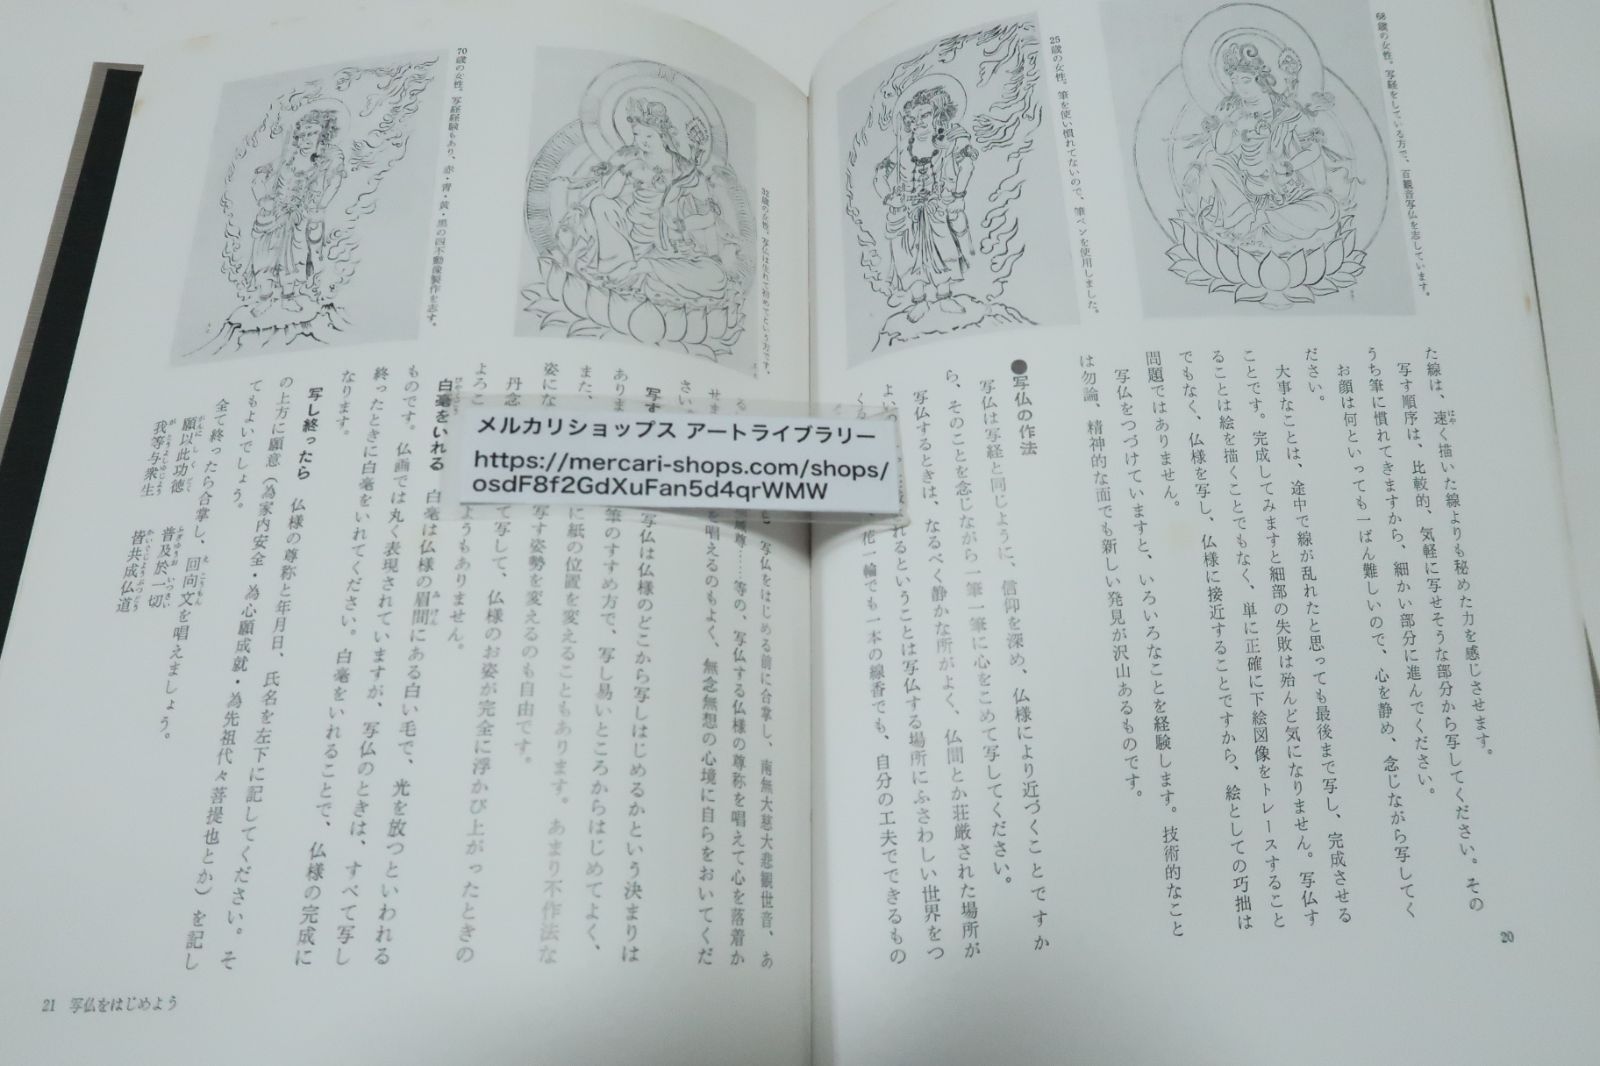 68歳の女性。写経をしている方で、百観音写仏を志しています。
25歳の女性。筆を使い慣れてないので、筆ペンを使用しました。
た線は、速く描いた線よりも秘めた力を感じさせます。
写す順序は、比較的、気軽に写せそうな部分から写してください。その
うち筆に慣れてきますから、細かい部分に進んでください。
お顔は何といっても一ばん難しいので、心を静め、念じながら写してく
ださい。
大事なことは、途中で線が乱れたと思っても最後まで写し、完成させる
ことです。完成してみますと細部の失敗は殆んど気になりません。写仏す
ることは絵を描くことでもなく、単に正確に下絵図像をトレースすること
でもなく、仏様を写し、仏様に接近することですから、絵としての巧拙は
問題ではありません。
写仏をつづけていますと、いろいろなことを経験します。技術的なこと
は勿論、精神的な面でも新しい発見が沢山あるものです。
●写仏の作法
写仏は写経と同じように、信仰を深め、仏様により近づくことですか
ら、そのことを念じながら一筆一筆に心をこめて写してください。
写仏するときは、なるべく静かな所がよく、仏間とか荘厳された場所が
よい
れるということは写仏する場所にふさわしい世界をつ
くる
花一輪でも一本の線香でも、自分の工夫でできるもの
20
32歳の女性。写仏は生れて初めてという方です。
70歳の女性。写経経験もあり、赤・青・黄・黒の四不動像製作を志す。
写仏をはじめる前に合掌し、南無大慈大悲観世音、あ
る
尊……等の、写仏する仏様の尊称を唱えて心を落着か
せま
を唱えるのもよく、無念無想の心境に自らをおいてくだ
さい。
写す
写仏は仏様のどこから写しはじめるかという決まりは
ありま
筆のすすめ方で、写し易いところからはじめてよく、
また、
に紙の位置を変えることもあります。あまり不作法な
姿にな
写す姿勢を変えるのも自由です。
丹念
て写して、仏様のお姿が完全に浮かび上がったときの
よろこ
ようもありません。
白毫をいれる　白毫は仏様の眉間にある白い毛で、光を放つといわれる
ものです。仏画では丸く表現されていますが、写仏のときは、すべて写し
終ったときに白毫をいれてください。白毫をいれることで、仏様の完成に
なります。
写し終ったら　仏様の尊称と年月日、氏名を左下に記してください。そ
の上方に願意（為家内安全・為心願成就・為先祖代々菩提也とか）を記し
てもよいでしょう。
全て終ったら合掌し、回向文を唱えましょう。
願以此功徳　普及於一切
我等与衆生　皆共成仏道
21　写仏をはじめよう
メルカリショップス アートライブラリー
https://mercari-shops.com/shops/
osdF8f2GdXuFan5d4qrWMW